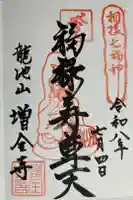 相模七福神
令和八年
七月四日
福禄寿尊天
龍池山 増全寺